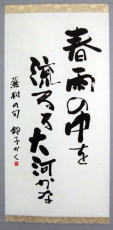 春雨の中を
流るゝ大河かな
蕪村の句 節子かく